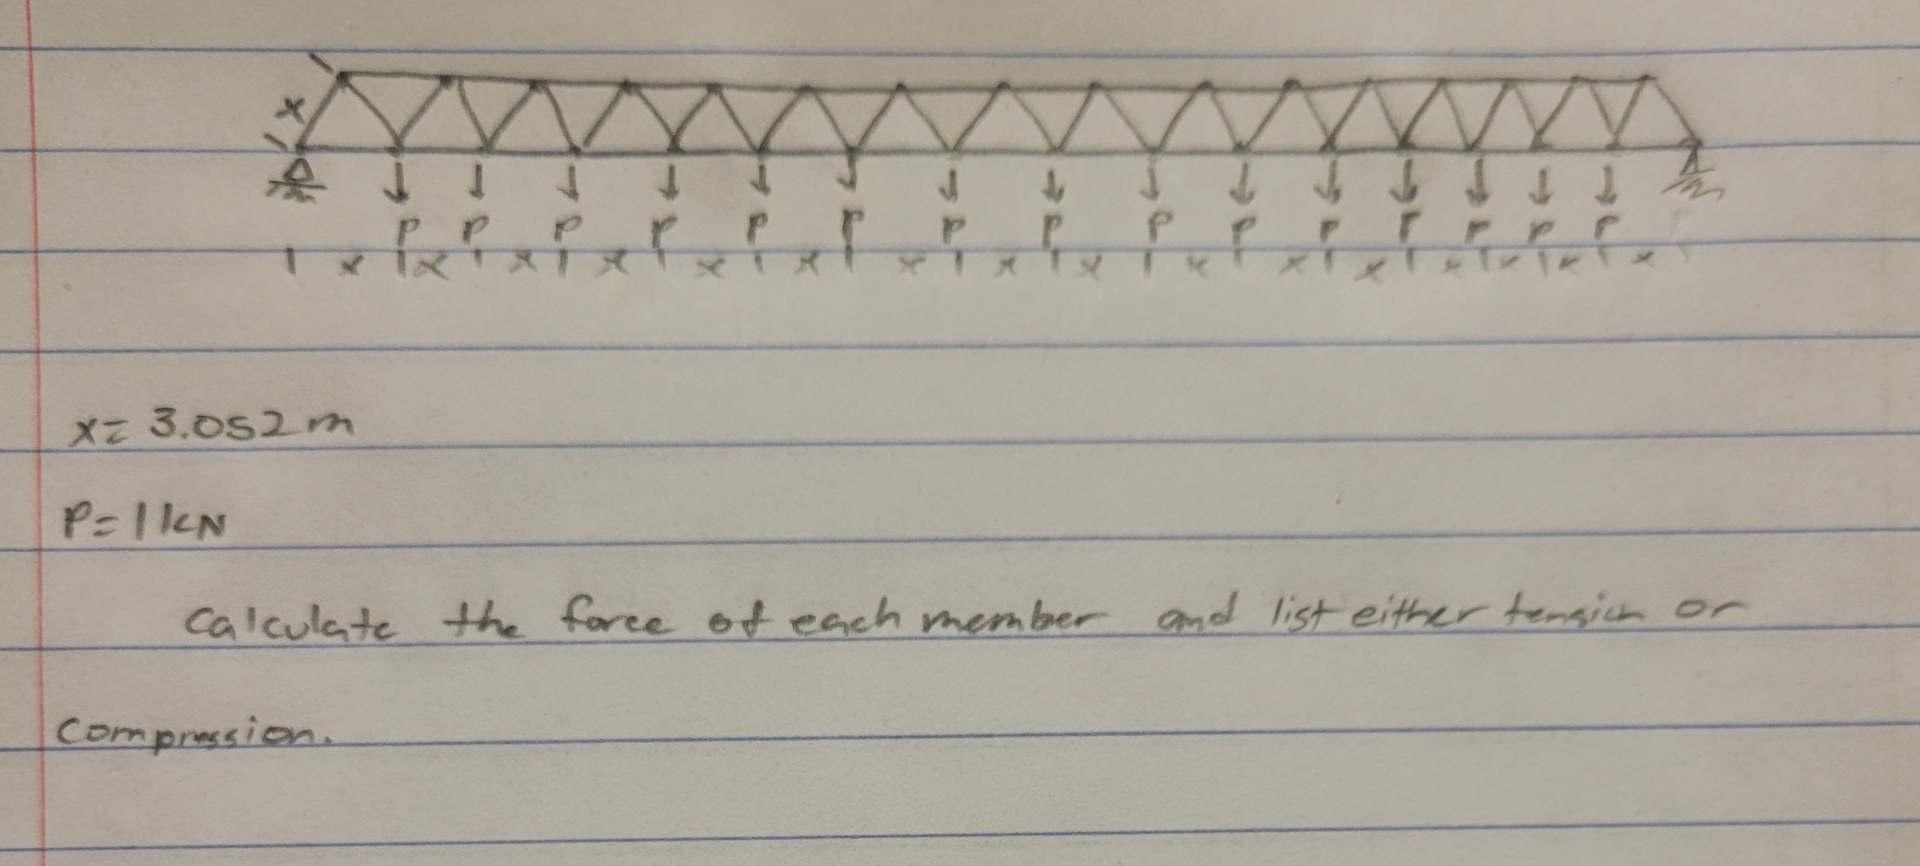 x
P P P P P P P P P P P P P P P
x x x x x x x x x x x x x x x x
x = 3.052 m
P = 1 kN
Calculate the force of each member and list either tension or
compression.